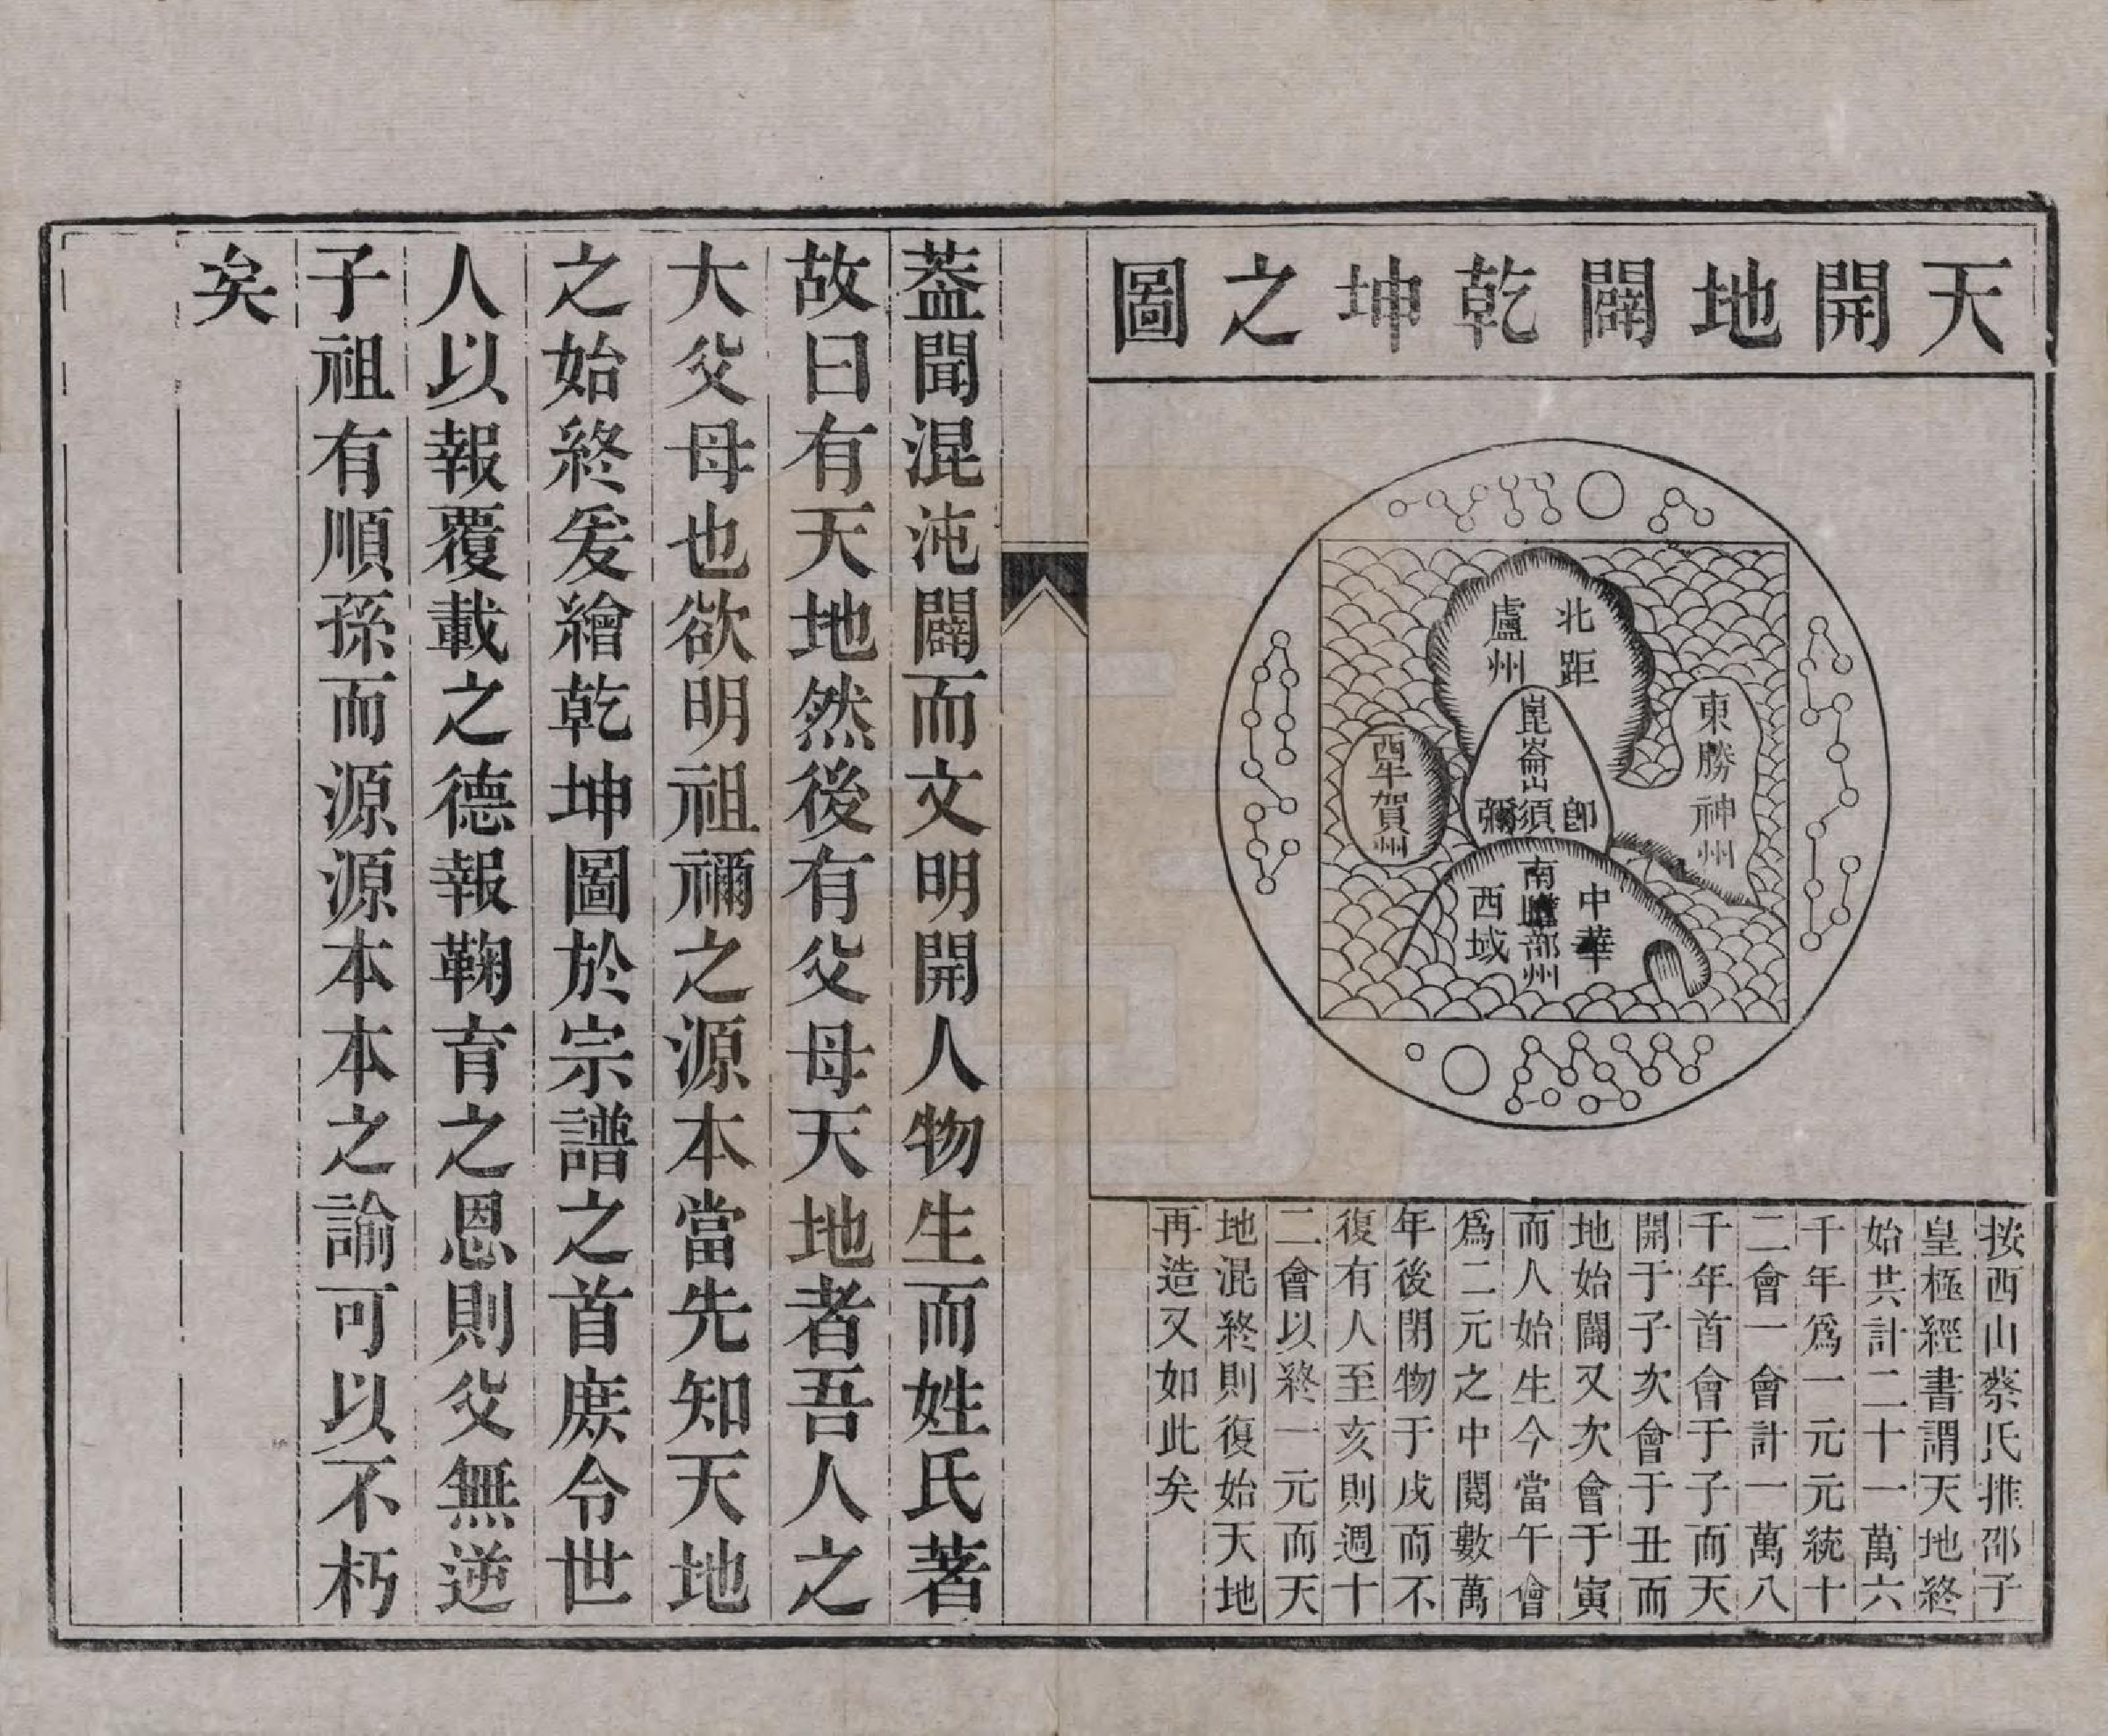 天開地闢乾坤之圖
北距
盧州
東勝神州
崑崙山
即須彌
西牛賀州
中華
南贍部州
西域
按西山蔡氏推邵子
皇極經書謂天地終
始共計二十一萬六
千年爲一元元統十
二會一會計一萬八
千年首會于子而天
開于子次會于丑而
地始闢又次會于寅
而人始生今當午會
爲二元之中閱數萬
年後閉物于戌而不
復有人至亥則週十
二會以終一元而天
地混終則復始天地
再造又如此矣
葢聞混沌闢而文明開人物生而姓氏著
故曰有天地然後有父母天地者吾人之
大父母也欲明祖禰之源本當先知天地
之始終爰繪乾坤圖於宗譜之首庶令世
人以報覆載之德報鞠育之恩則父無逆
子祖有順孫而源源本本之諭可以不朽
矣